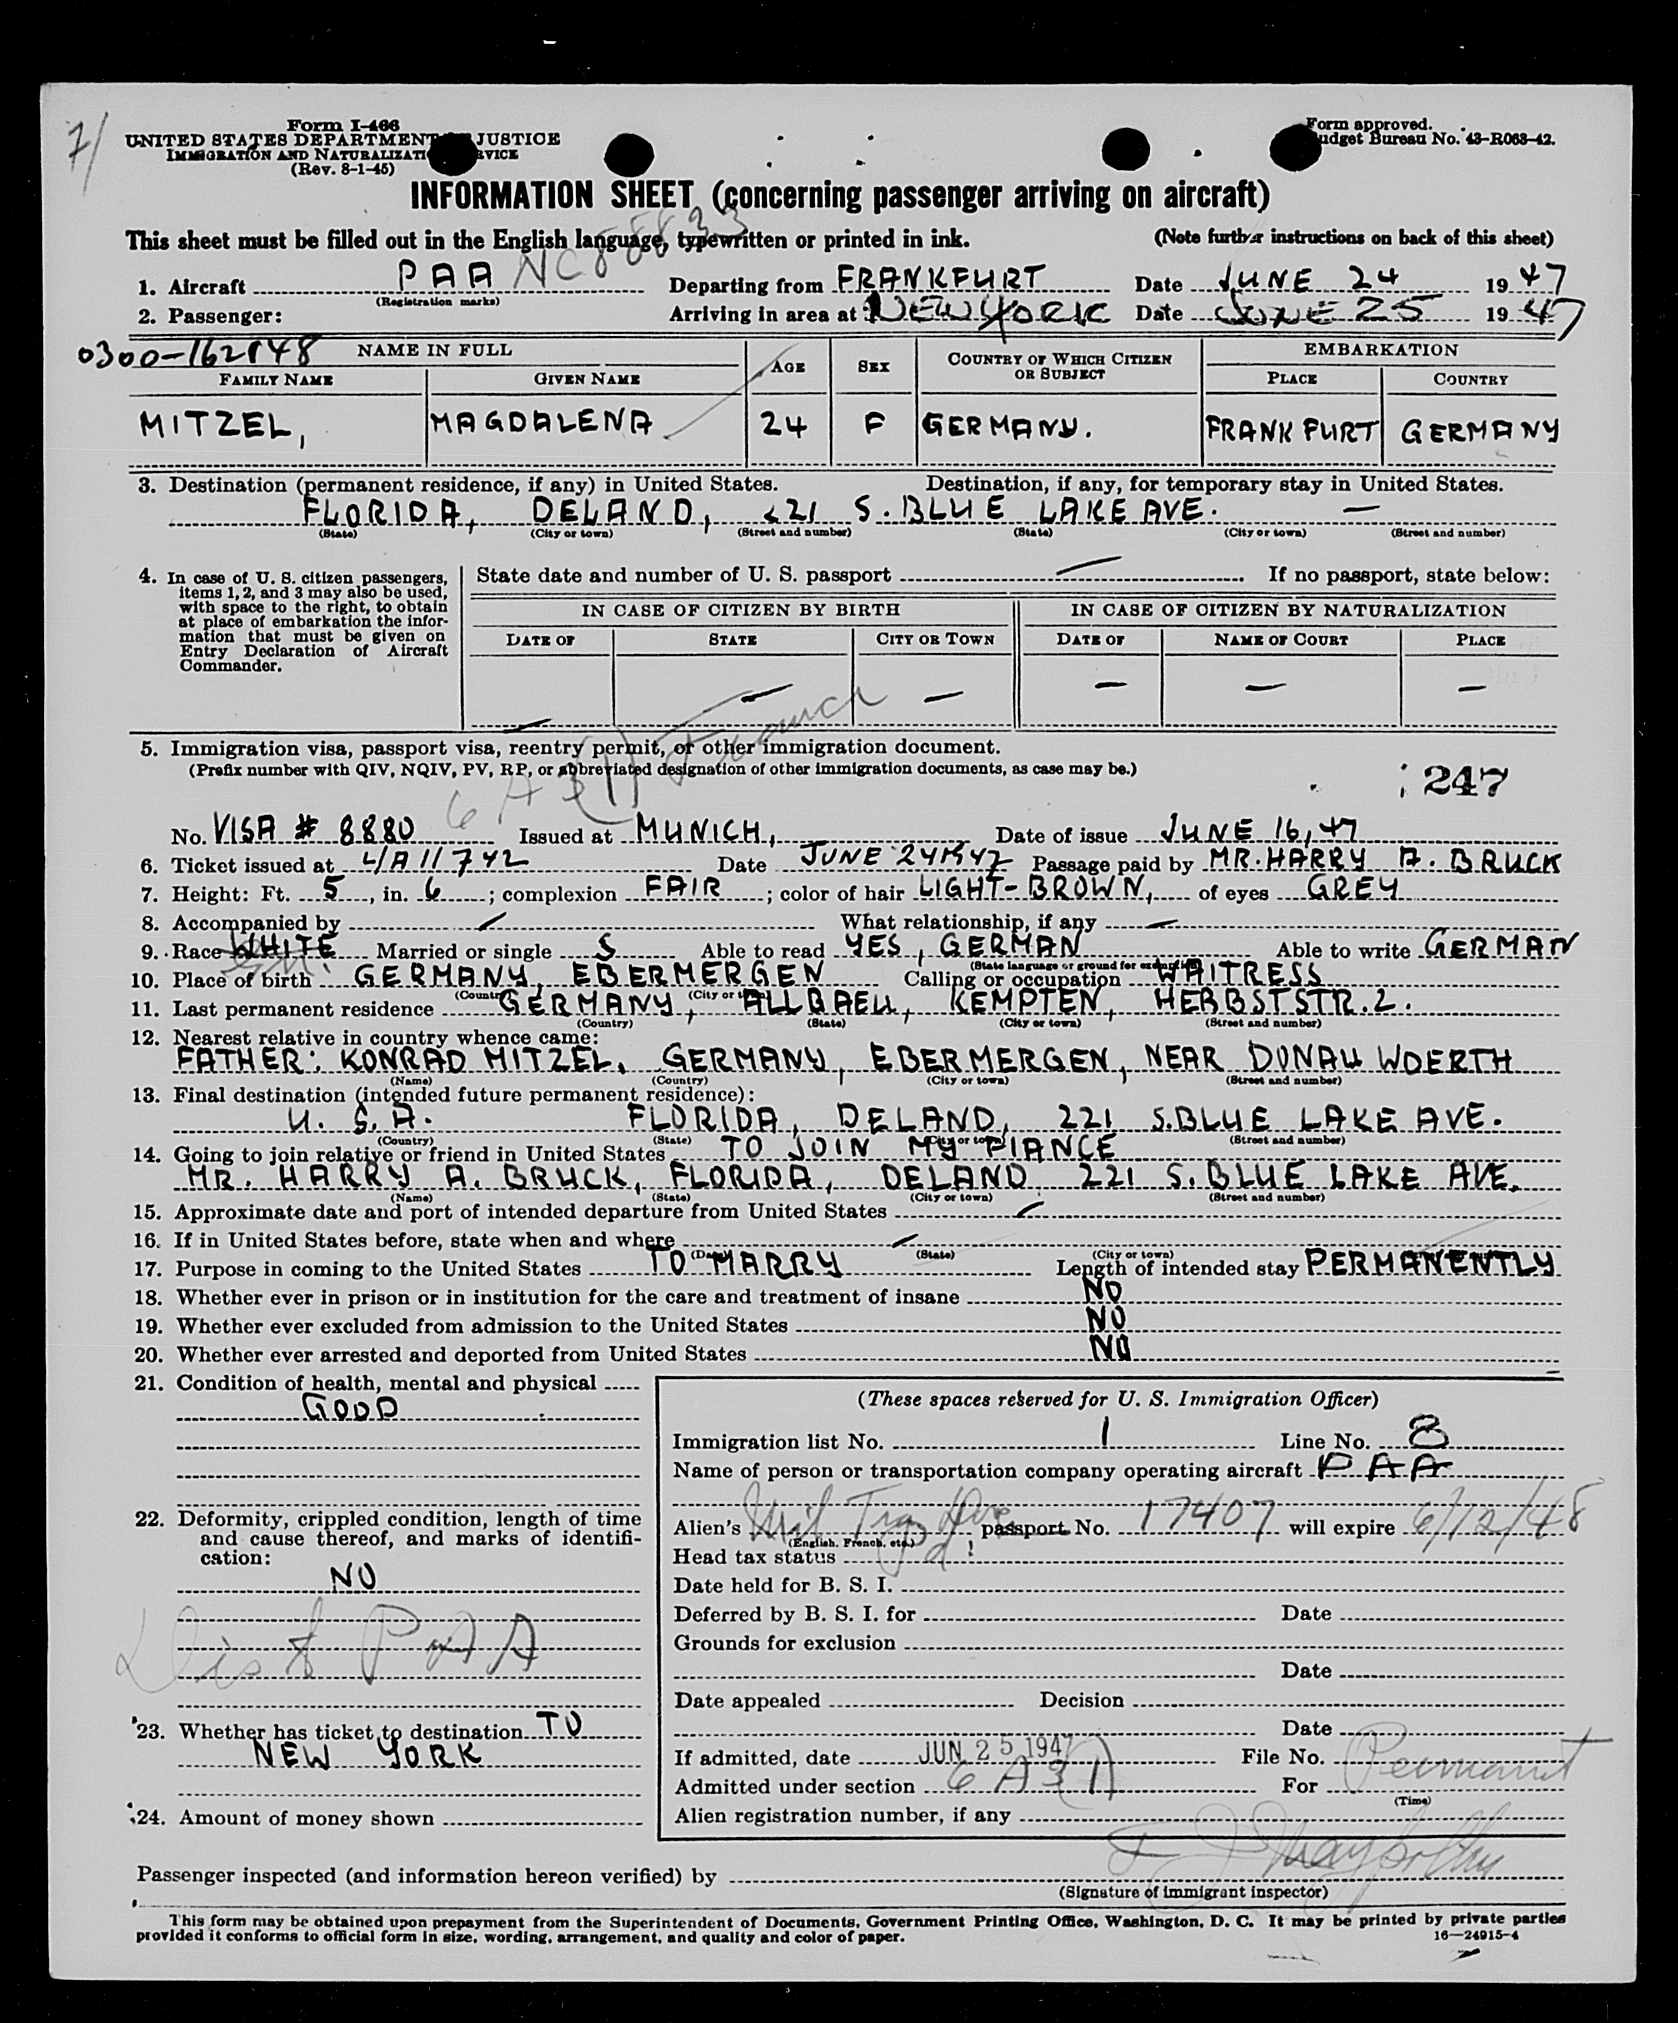 7/
Form I-466
UNITED STATES DEPARTMENT JUSTICE
IMMIGRATION AND NATURALIZATI RVICE
(Rev. 8-1-45)
Form approved.
udget Bureau No. 43-R063-42.
INFORMATION SHEET (concerning passenger arriving on aircraft)
This sheet must be filled out in the English language, typewritten or printed in ink. (Note further instructions on back of this sheet)
1. Aircraft PAA NC88833 Departing from FRANKFURT Date JUNE 24 1947
(Registration marks)
2. Passenger: Arriving in area at NEW YORK Date JUNE 25 1947
0300-162848 NAME IN FULL AGE SEX COUNTRY OF WHICH CITIZEN OR SUBJECT EMBARKATION
FAMILY NAME GIVEN NAME PLACE COUNTRY
MITZEL, MAGDALENA 24 F GERMANY. FRANKFURT GERMANY
3. Destination (permanent residence, if any) in United States. Destination, if any, for temporary stay in United States.
FLORIDA, DELAND, 221 S. BLUE LAKE AVE. —
(State) (City or town) (Street and number) (State) (City or town) (Street and number)
4. In case of U. S. citizen passengers, items 1, 2, and 3 may also be used, with space to the right, to obtain at place of embarkation the information that must be given on Entry Declaration of Aircraft Commander.
State date and number of U. S. passport — . If no passport, state below:
IN CASE OF CITIZEN BY BIRTH IN CASE OF CITIZEN BY NATURALIZATION
DATE OF STATE CITY OR TOWN DATE OF NAME OF COURT PLACE
— — — — — —
5. Immigration visa, passport visa, reentry permit, or other immigration document.
(Prefix number with QIV, NQIV, PV, RP, or abbreviated designation of other immigration documents, as case may be.)
6 A 3(1)
247
No. VISA # 8880 Issued at MUNICH, Date of issue JUNE 16, 47
6. Ticket issued at LIA 11742 Date JUNE 24th 47 Passage paid by MR. HARRY A. BRUCK
7. Height: Ft. 5, in. 6; complexion FAIR; color of hair LIGHT-BROWN, of eyes GREY
8. Accompanied by — What relationship, if any —
9. Race WHITE Married or single S Able to read YES, GERMAN Able to write GERMAN
(State language or ground for exemption)
10. Place of birth GERMANY, EBERMERGEN Calling or occupation WAITRESS
(Country) (City or town)
11. Last permanent residence GERMANY, ALLGAEU, KEMPTEN, HERBSTSTR. 2.
(Country) (State) (City or town) (Street and number)
12. Nearest relative in country whence came:
FATHER: KONRAD MITZEL, GERMANY, EBERMERGEN, NEAR DONAU WOERTH
(Name) (Country) (City or town) (Street and number)
13. Final destination (intended future permanent residence):
U. S. A. FLORIDA, DELAND, 221 S. BLUE LAKE AVE.
(Country) (State) (City or town) (Street and number)
14. Going to join relative or friend in United States TO JOIN MY FIANCE
MR. HARRY A. BRUCK, FLORIDA, DELAND 221 S. BLUE LAKE AVE.
(Name) (State) (City or town) (Street and number)
15. Approximate date and port of intended departure from United States —
16. If in United States before, state when and where —
(Date) (State) (City or town)
17. Purpose in coming to the United States TO MARRY Length of intended stay PERMANENTLY
18. Whether ever in prison or in institution for the care and treatment of insane NO
19. Whether ever excluded from admission to the United States NO
20. Whether ever arrested and deported from United States NO
21. Condition of health, mental and physical
GOOD
22. Deformity, crippled condition, length of time and cause thereof, and marks of identification:
NO
PAA
23. Whether has ticket to destination TO
NEW YORK
24. Amount of money shown
(These spaces reserved for U. S. Immigration Officer)
Immigration list No. 1 Line No. 8
Name of person or transportation company operating aircraft PAA
Alien's Mil passport No. 17407 will expire 6/12/48
(English, French, etc.)
Head tax status
Date held for B. S. I.
Deferred by B. S. I. for Date
Grounds for exclusion
Date
Date appealed Decision
Date
If admitted, date JUN 25 1947 File No.
Admitted under section 6 A 3(1) For Permanent
(Time)
Alien registration number, if any
Passenger inspected (and information hereon verified) by
(Signature of immigrant inspector)
This form may be obtained upon prepayment from the Superintendent of Documents, Government Printing Office, Washington, D. C. It may be printed by private parties
provided it conforms to official form in size, wording, arrangement, and quality and color of paper. 16—24915-4